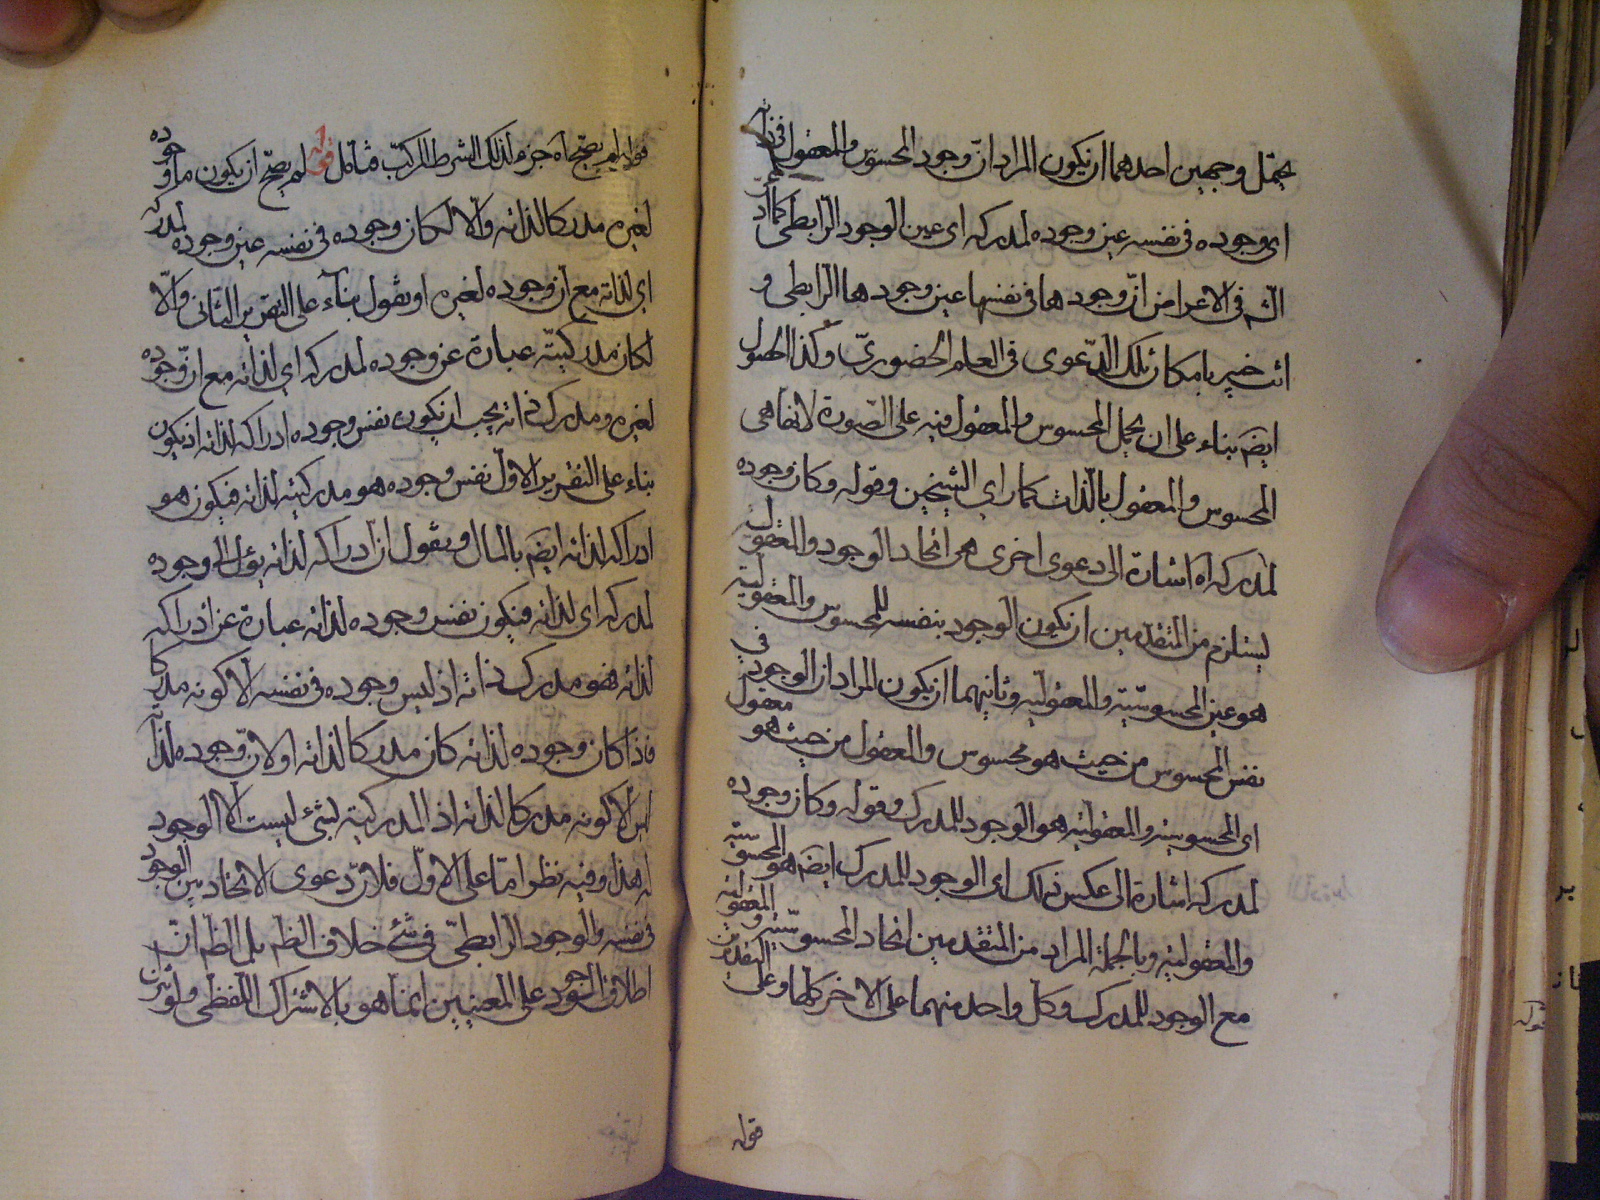 يحتمل وجهين احدهما ان يكون المراد ان وجود المحسوس والمعقول فى ذاته
اى وجوده فى نفسه عين وجوده لمدركه اى عين الوجود الرابطى كما ان
فى الاعراض ان وجودها فى نفسها عين وجودها الرابطى و
انت خبير بامكان تلك الدّعوى فى العلم الحضورىّ وكذا الحصول
ايضَ بناء على ان يحمل المحسوس والمعقول فيه على الصّورة لانها هى
المحسوس والمعقول بالذات كما راى الشيخين وقوله وكان وجوده
لمدركه اه اشارة الى دعوى اخرى هى اتحاد الوجود والمعقول
يستلزم من المتقدمين ان يكون الوجود بنفسه للمحسوس والمعقولية
هو عين المحسوسيّة والمعقوليّة وثانيهما ان يكون المراد ان الوجود فى
نفس المحسوس من حيث هو محسوس والمعقول من حيث هو معقول
اى المحسوسية والمعقولية هو الوجود للمدرك وقوله وكان وجوده
لمدركه اشارة الى عكس ذلك اى الوجود للمدرك ايضَ هو المحسوسيّة
والمعقولية وبالجملة المراد من المتقدمين اتحاد المحسوسيّة والمعقولية
مع الوجود للمدرك وكل واحد منهما على الاخر كلها وعلى التقديرين
قوله
قوله لم يصحّ اه جزم لذلك الشرط المركّب فتامل قوله لم يصحّ ان يكون ما وجوده
لغيره مدركا لذاته والا لكان وجوده فى نفسه عين وجوده لمدركه
اى لذاته مع ان وجوده لغيره او نقول بناء على التقرير الثانى والّا
لكان مدركيّته عبارة عن وجوده لمدركه اى لذاته مع ان وجوده
لغيره ومدرك ذاته يجب ان يكون نفس وجوده ادراكه لذاته اذ يكون
بناء على التقرير الاول نفس وجوده هو مدركيته لذاته فيكون هو
ادراكه لذاته ايضَ بالمال او نقول ان ادراكه لذاته يؤل الى وجوده
لمدركه اى لذاته فيكون نفس وجوده لذاته عبارة عن ادراكه
لذاته فهو مدرك ذاته اذ ليس وجوده فى نفسه الا كونه مدركا
فاذا كان وجوده لذاته كان مدركا لذاته او لان وجوده لذاته
ليس الا كونه مدركا لذاته اذ المدركية لشئ ليست الا الوجود
له هذا وفيه نظر امّا على الاوّل فلانّ دعوى الاتحاد بين الوجود
فى نفسه والوجود الرابطىّ فى شئ خلاف الظم بل الظم انّ
اطلاق الوجود على المعنيين انّما هو بالاشتراك اللفظى ولو